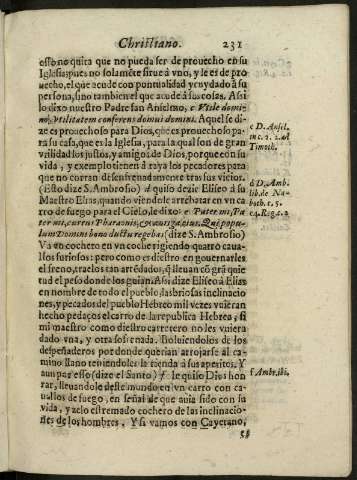 Christiano. 231
esto no quita que no pueda ser de prouecho en su
Iglesia: pues no solamēte sirue à vno, y le es de pro
uecho, el que acude con puntualidad y cuydado à su
persona, sino tambien el que acude à sus cosas. Assi
lo dixo nuestro Padre san Anselmo, c Vtile domi-
no, vtilitatem conferens domui domini. Aquel se di-
ze es prouechoso para Dios, que es prouechoso pa-
ra su casa, que es la Iglesia, para la qual son de gran
vtilidad los justos, y amigos de Dios, porque con su
vida, y exemplo tienen à raya los pecadores para
que no corran desenfrenadamente tras sus vicios.
(Esto dize S. Ambrosio) d quiso dezir Eliseo à su
Maestro Elias, quando viendole arrebatar en vn ca
rro de fuego para el Cielo, le dixo: e Pater mi, Pa
ter mi, currus
populum Domini bono ductu regebas (dize S. Ambrosio)
Va vn cochero en vn coche rigiendo quatro caua-
llos furiosos: pero como es diestro en gouernarles
el freno, traelos tan arrēdados, q̃ lleuan cō grā quie
tud el peso donde los guian. Assi dize Eliseo à Elias
en nombre de todo el pueblo, las briosas inclinacio
nes, y pecados del pueblo Hebreo mil vezes vuieran
hecho pedaços el carro de la republica Hebrea, si
mi maestro como diestro carretero no les vuiera
dado vna, y otra sofrenada. Boluiendolos de los
despeñaderos por donde querian arrojarse al ca-
mino llano teniendoles la rienda à sus apetitos. Y
aun por esso (dize el Santo) f le quiso Dios hon
rar, lleuandole deste mundo en vn carro con ca-
uallos de fuego, en señal de que auia sido con su
vida, y zelo estremado cochero de las inclinacio-
nes de los hombres. Y si vamos con Cayetano,
c D. Ansel.
in c. 2. 2. ad
Timoth.
d D. Amb.
lib. de Na-
both. c. 5.
e 4. Reg. c. 2
f Ambr. ibi.